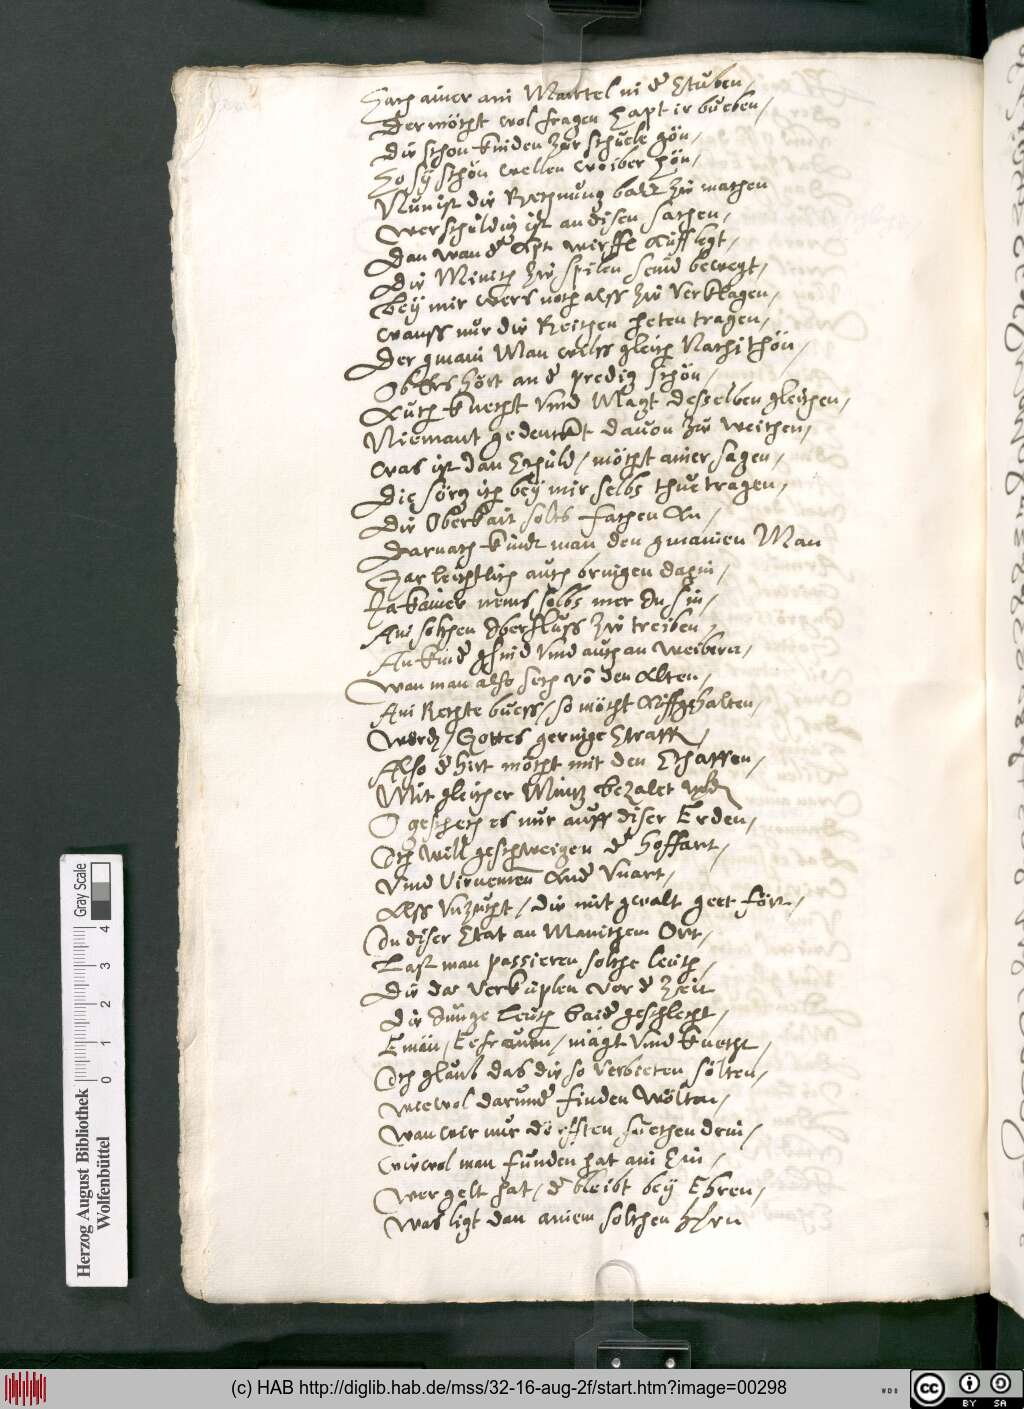 Sach ainer ain Mantel in d Stuben /
Der möcht wol fragen habt ir bueben /
Die schon kinden zur schuele gön /
So sÿ schön wellen weiber hön /
Nun ist die Rechnung bald zu machen
Wer schuldig ist an disen sachen /
Dan wan d Apt wirffl aufflegt /
Die Minich zu spilen send bewegt /
Beÿ mir wers noch alss zu verklagen /
wanss nur die Reichen heten tragen /
Der gmain Man welss gleich Nachi thön /
Ob Ers hört an d predig schön /
Auch knecht vnd Magt desselben gleichen /
Niemant gedenckt dauon zu weichen /
was ist dan Schuld / möcht ainer sagen /
Die sorg ich beÿ mir selbs thue tragen /
Die Oberkait solts fachen An /
Darnach kindt man den gmainen Man
Gar leichtlich auch bringen dahin /
Ja kainer nems selbs mer In sin /
Ain solchen Oberfluss zu treiben /
An kind gsind vnd auch an weibern /
wan man also sech vo den Alten /
Ain Rechte buess / so möcht Auffghalten /
Werdn / Gottes geringe Straff /
Also d hirt möcht mit den Schaffen /
Mit gleicher Mintz bezalet wrdn
O geschech es nur auff diser Erden /
Ich will geschweigen d hoffart /
Vnd virnemen And Vnart /
Alss vnzucht / die mit gwalt geet fört /
In diser Stat an Manichem Ort /
Last man passieren solche leuth /
Die da verkuplen vor d Zeit
Die Junge leuth baid geschlecht /
Eman / Eefrauen / mägt vnd knecht /
Ich glaub das die so verbieten solten /
wiewol darund finden wölten /
wan wir nur dörfften suechen drin /
wiewol man funden hat ain Ein /
wer gelt hat / d bleibt beÿ Ehren /
Was ligt dan ainem solchen hern
Herzog August Bibliothek
Wolfenbüttel
0 1 2 3 4
Gray Scale
(c) HAB http://diglib.hab.de/mss/32-16-aug-2f/start.htm?image=00298
WDB
cc
BY SA